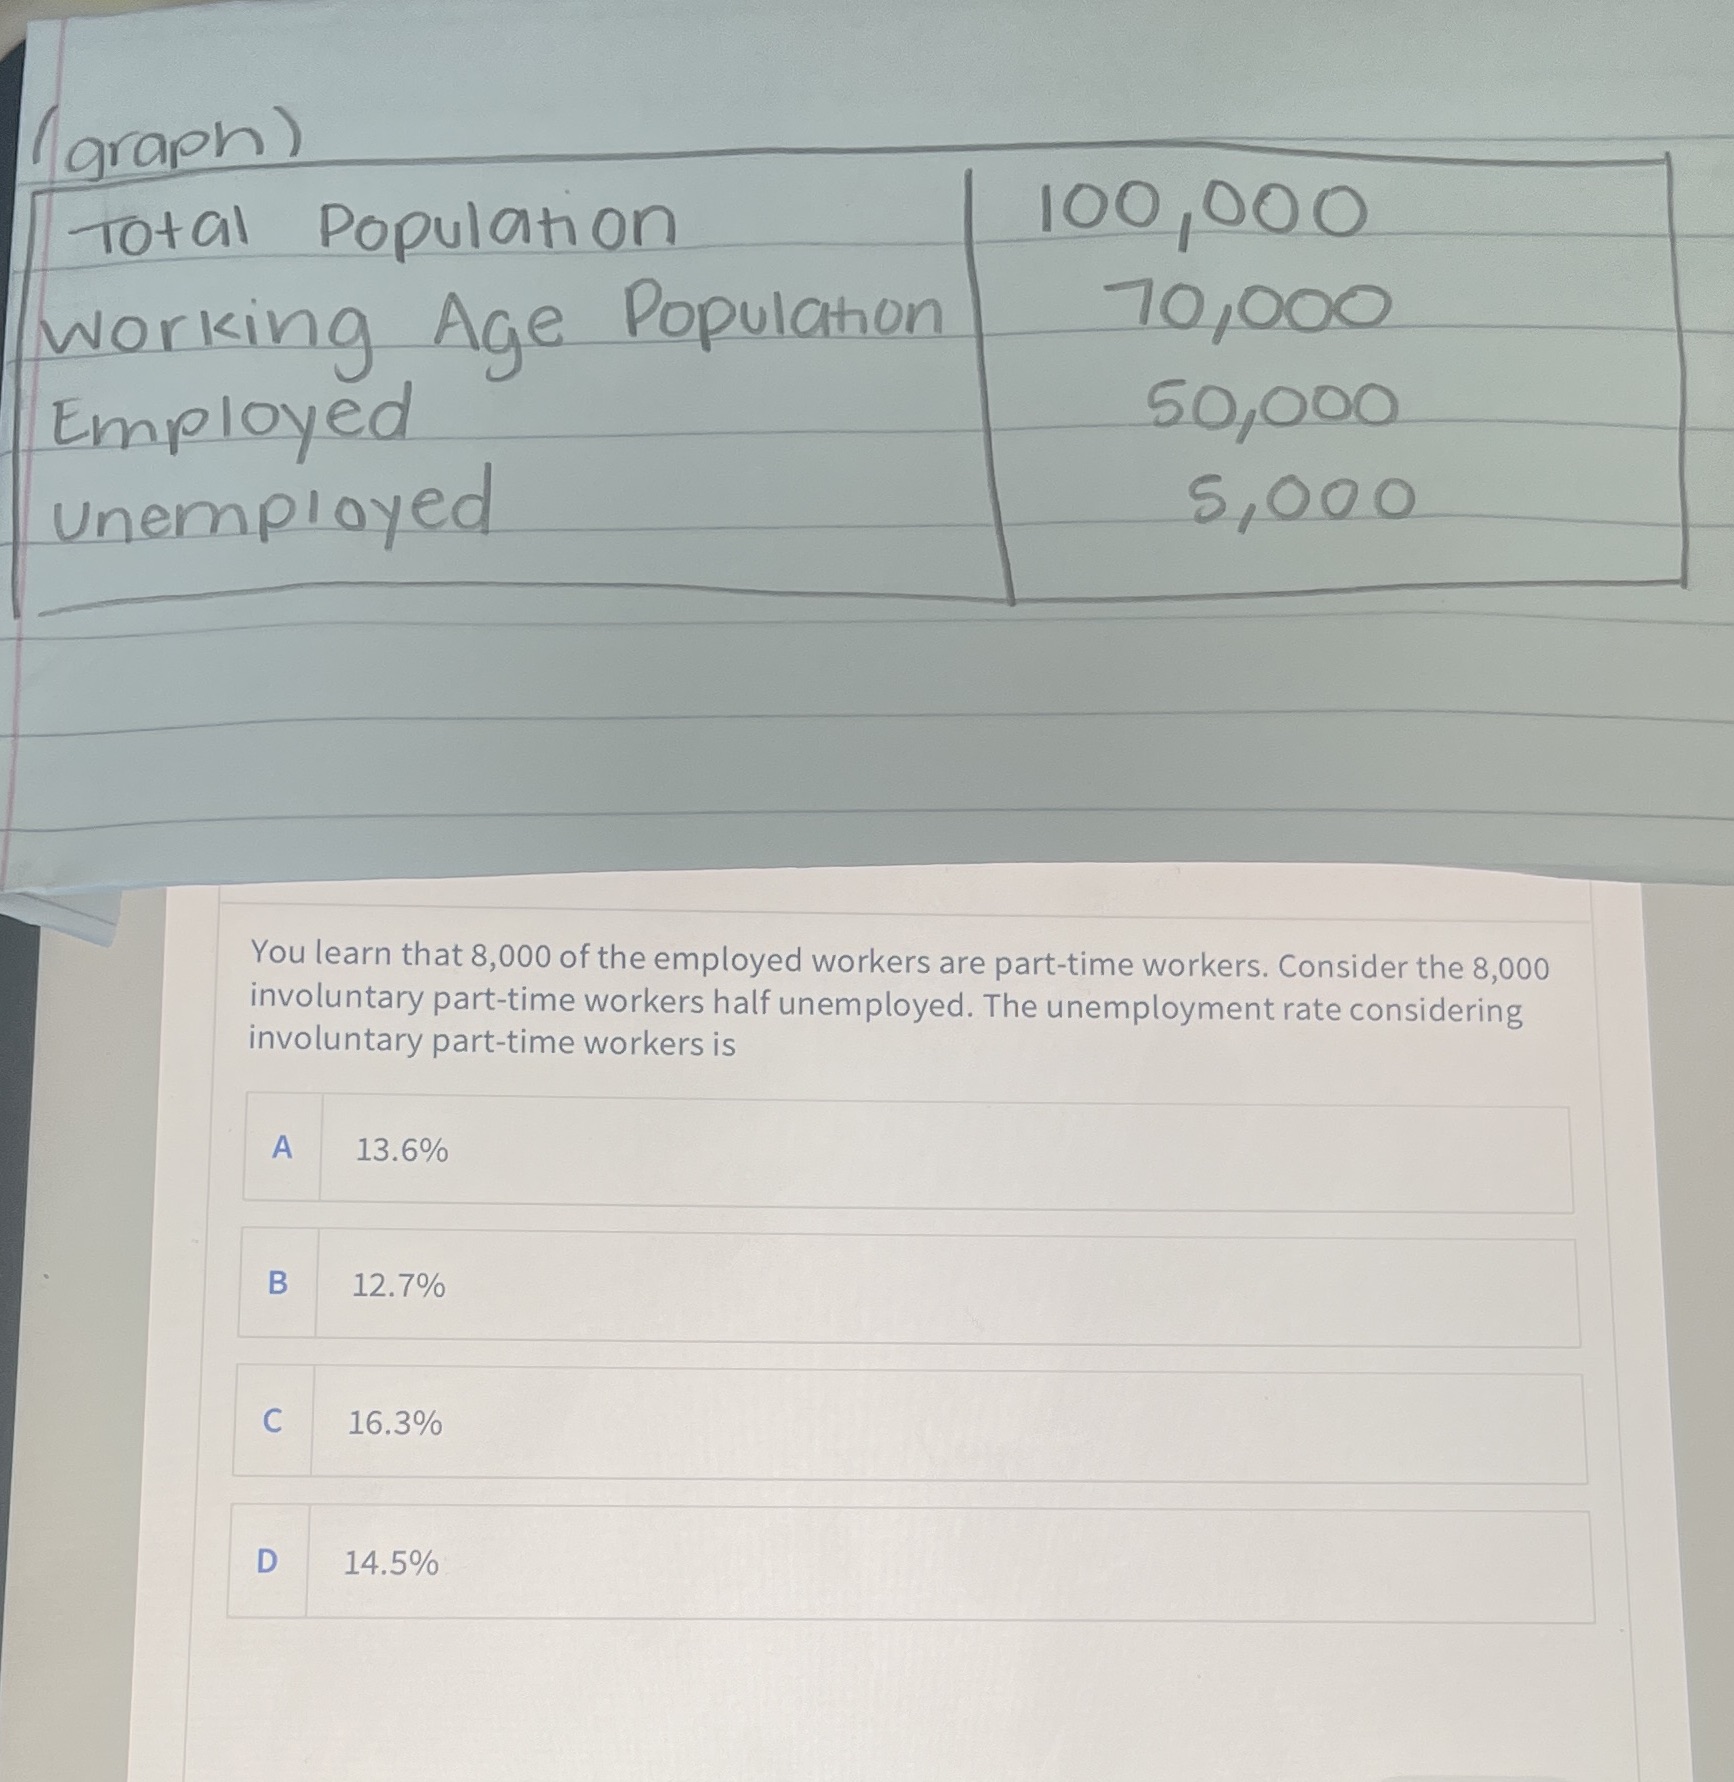 (graph)
Total Population 100,000
Working Age Population 70,000
Employed 50,000
unemployed 5,000
You learn that 8,000 of the employed workers are part-time workers. Consider the 8,000
involuntary part-time workers half unemployed. The unemployment rate considering
involuntary part-time workers is
A 13.6%
B 12.7%
C 16.3%
D 14.5%